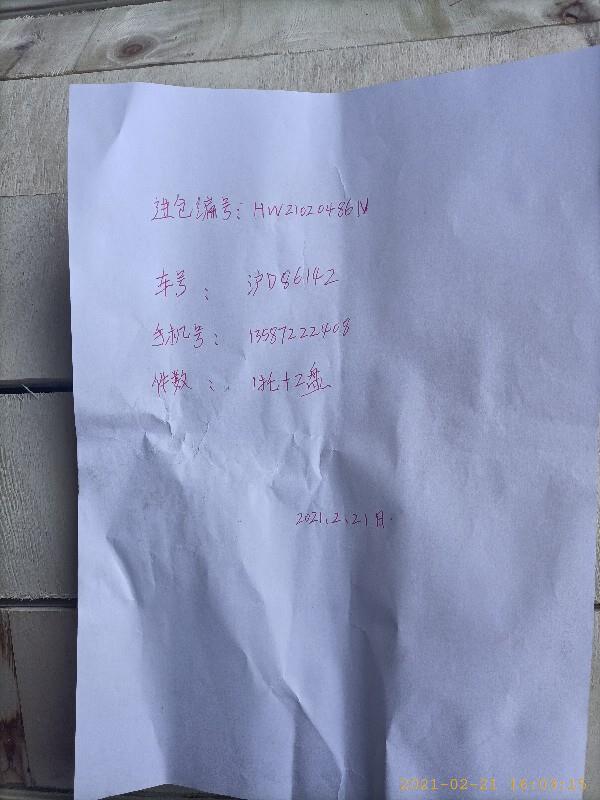 进仓编号：HW21020486N
车号：沪D86142
手机号：13587222408
件数：1托+2盘
2021.2.21日.
2021-02-21 16:03:15